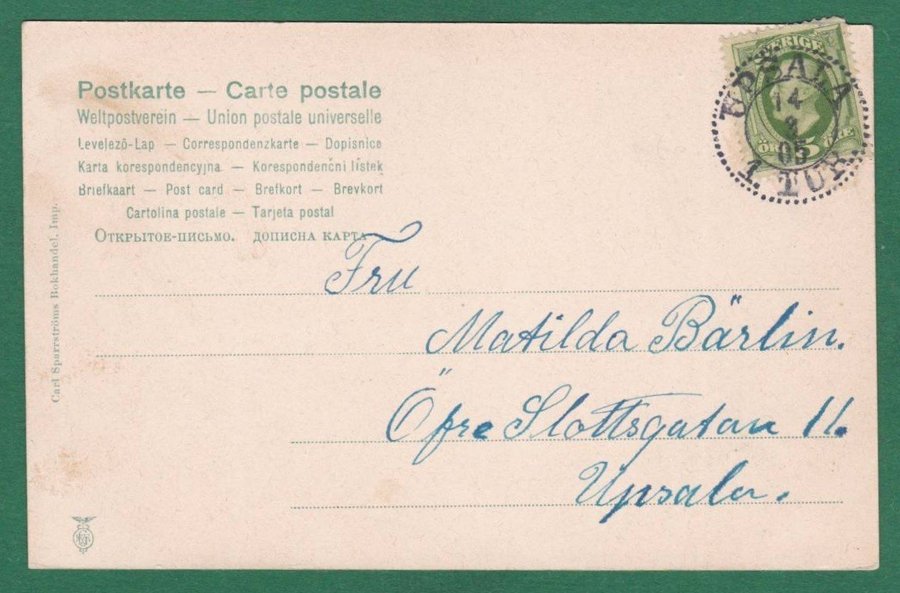 Postkarte — Carte postale
Weltpostverein — Union postale universelle
Levelező-Lap — Correspondenzkarte — Dopisnice
Karta korespondencyjna — Korespondenční lístek
Briefkaart — Post card — Brefkort — Brevkort
Cartolina postale — Tarjeta postal
Открытое-письмо. дописна карта
SVERIGE
UPSALA
14
05
1. TUR
5 ÖRE
Fru
Matilda Bärlin.
Öfre Slottsgatan 11.
Upsala.
Carl Sparrströms Bokhandel, Imp.